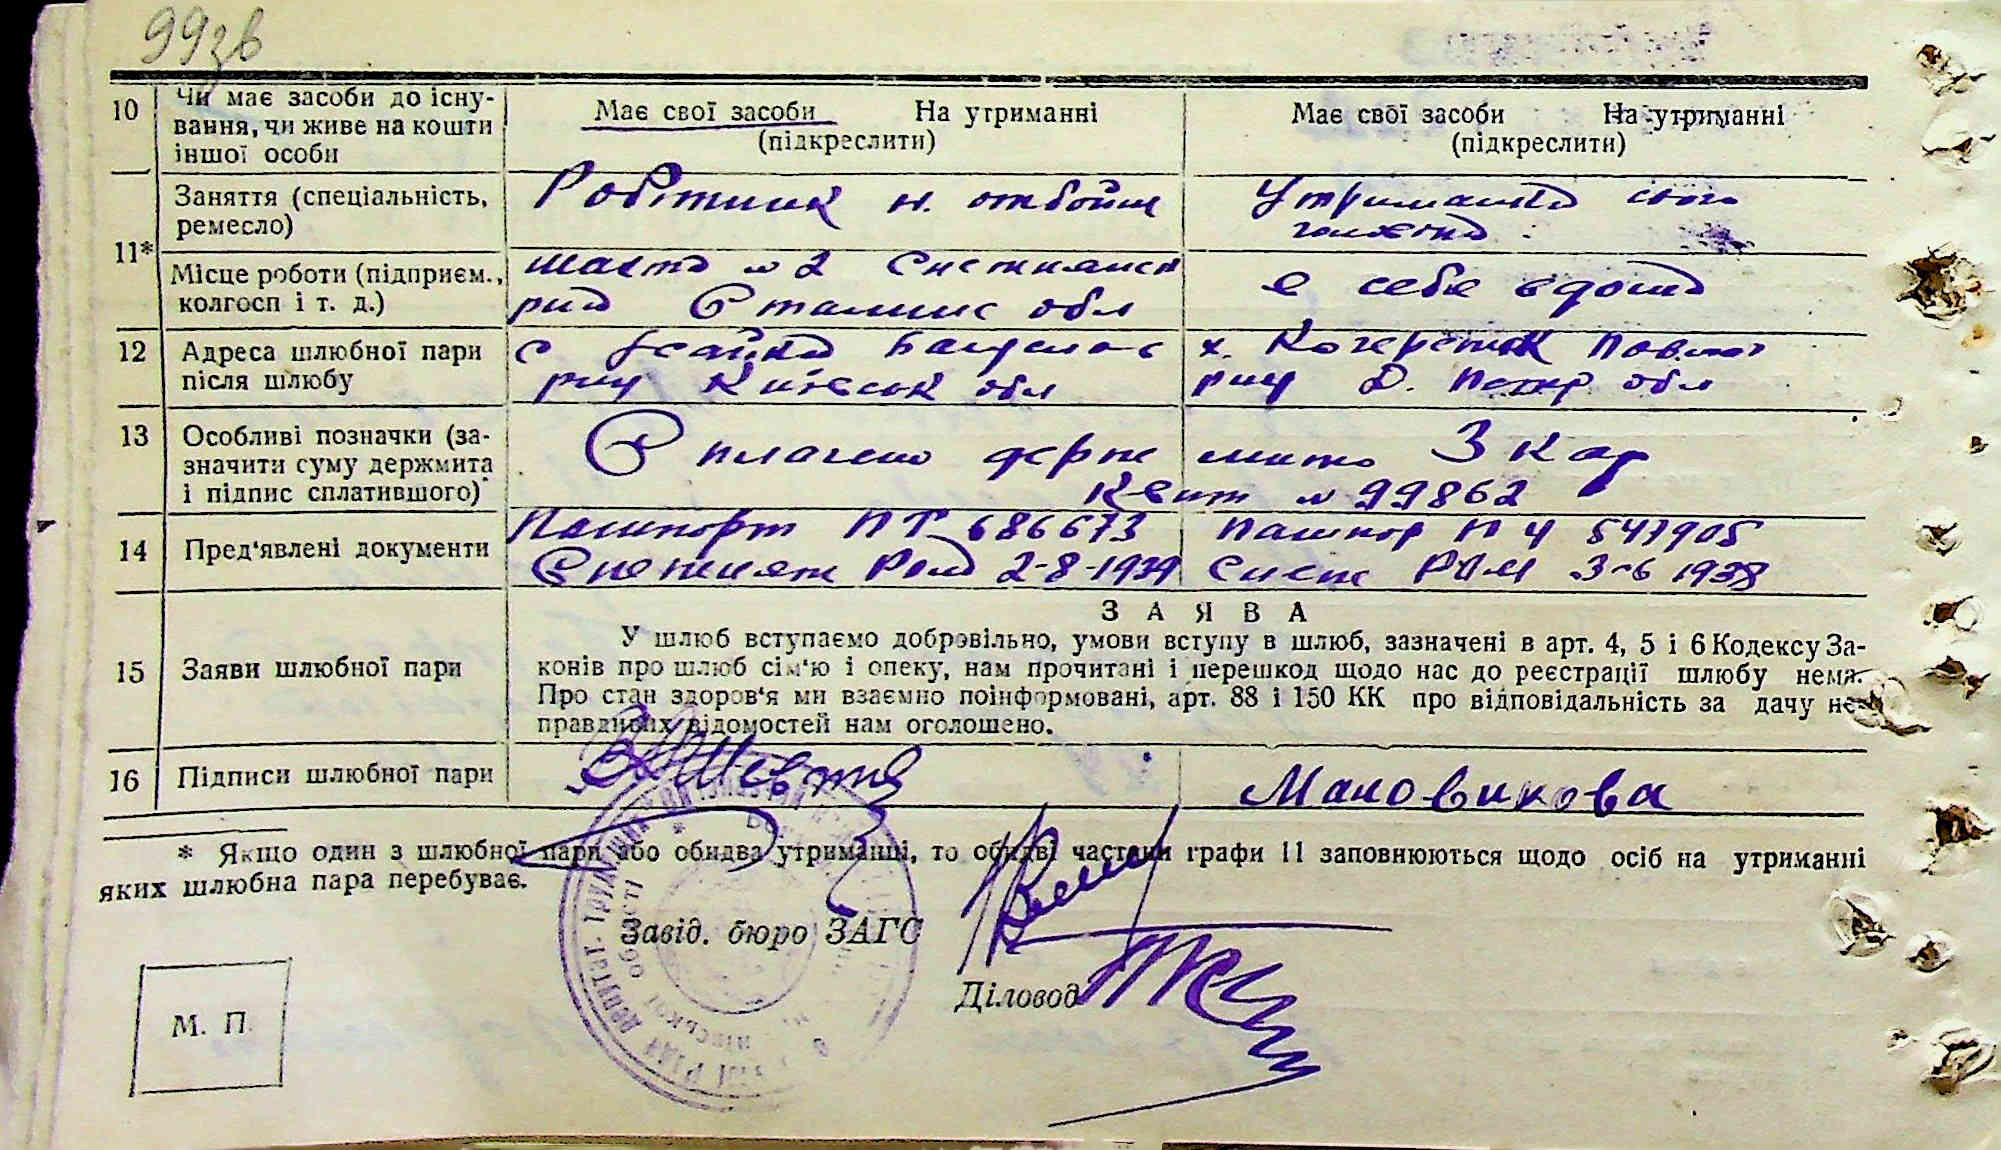 99зв
10 Чи має засоби до існу-
вання, чи живе на кошти
іншої особи
Має свої засоби На утриманні
(підкреслити)
Має свої засоби На утриманні
(підкреслити)
11*
Заняття (спеціальність,
ремесло)
Робітник н. отбойщ
Утриманка свого
Місце роботи (підприєм.,
колгосп і т. д.)
шахта №2 Снежнянск
рай Сталинс обл
в себе вдома
12 Адреса шлюбної пари
після шлюбу
с Ісайки Богуслав
рну Київськ обл
х. Кочережк Павло
рну Д. Петр обл
13 Особливі позначки (за-
значити суму держмита
і підпис сплатившого)
Сплачено держ мито 3 кар
Квит №99862
14 Пред'явлені документи
Пашпорт ПТ 686673
Снежнян РОМ 2-8-1939
Пашпор ПЧ 541905
Снеж РОМ 3-6 1938
15 Заяви шлюбної пари
ЗАЯВА
У шлюб вступаємо добровільно, умови вступу в шлюб, зазначені в арт. 4, 5 і 6 Кодексу За-
конів про шлюб сім'ю і опеку, нам прочитані і перешкод щодо нас до реєстрації шлюбу нема.
Про стан здоров'я ми взаємно поінформовані, арт. 88 і 150 КК про відповідальність за дачу не-
правдивих відомостей нам оголошено.
16 Підписи шлюбної пари
Шевч
Маковикова
* Якщо один з шлюбної пари або обидва утриманці, то обидві частини графи 11 заповнюються щодо осіб на утриманні
яких шлюбна пара перебуває.
Завід. бюро ЗАГС
Діловод
М. П.